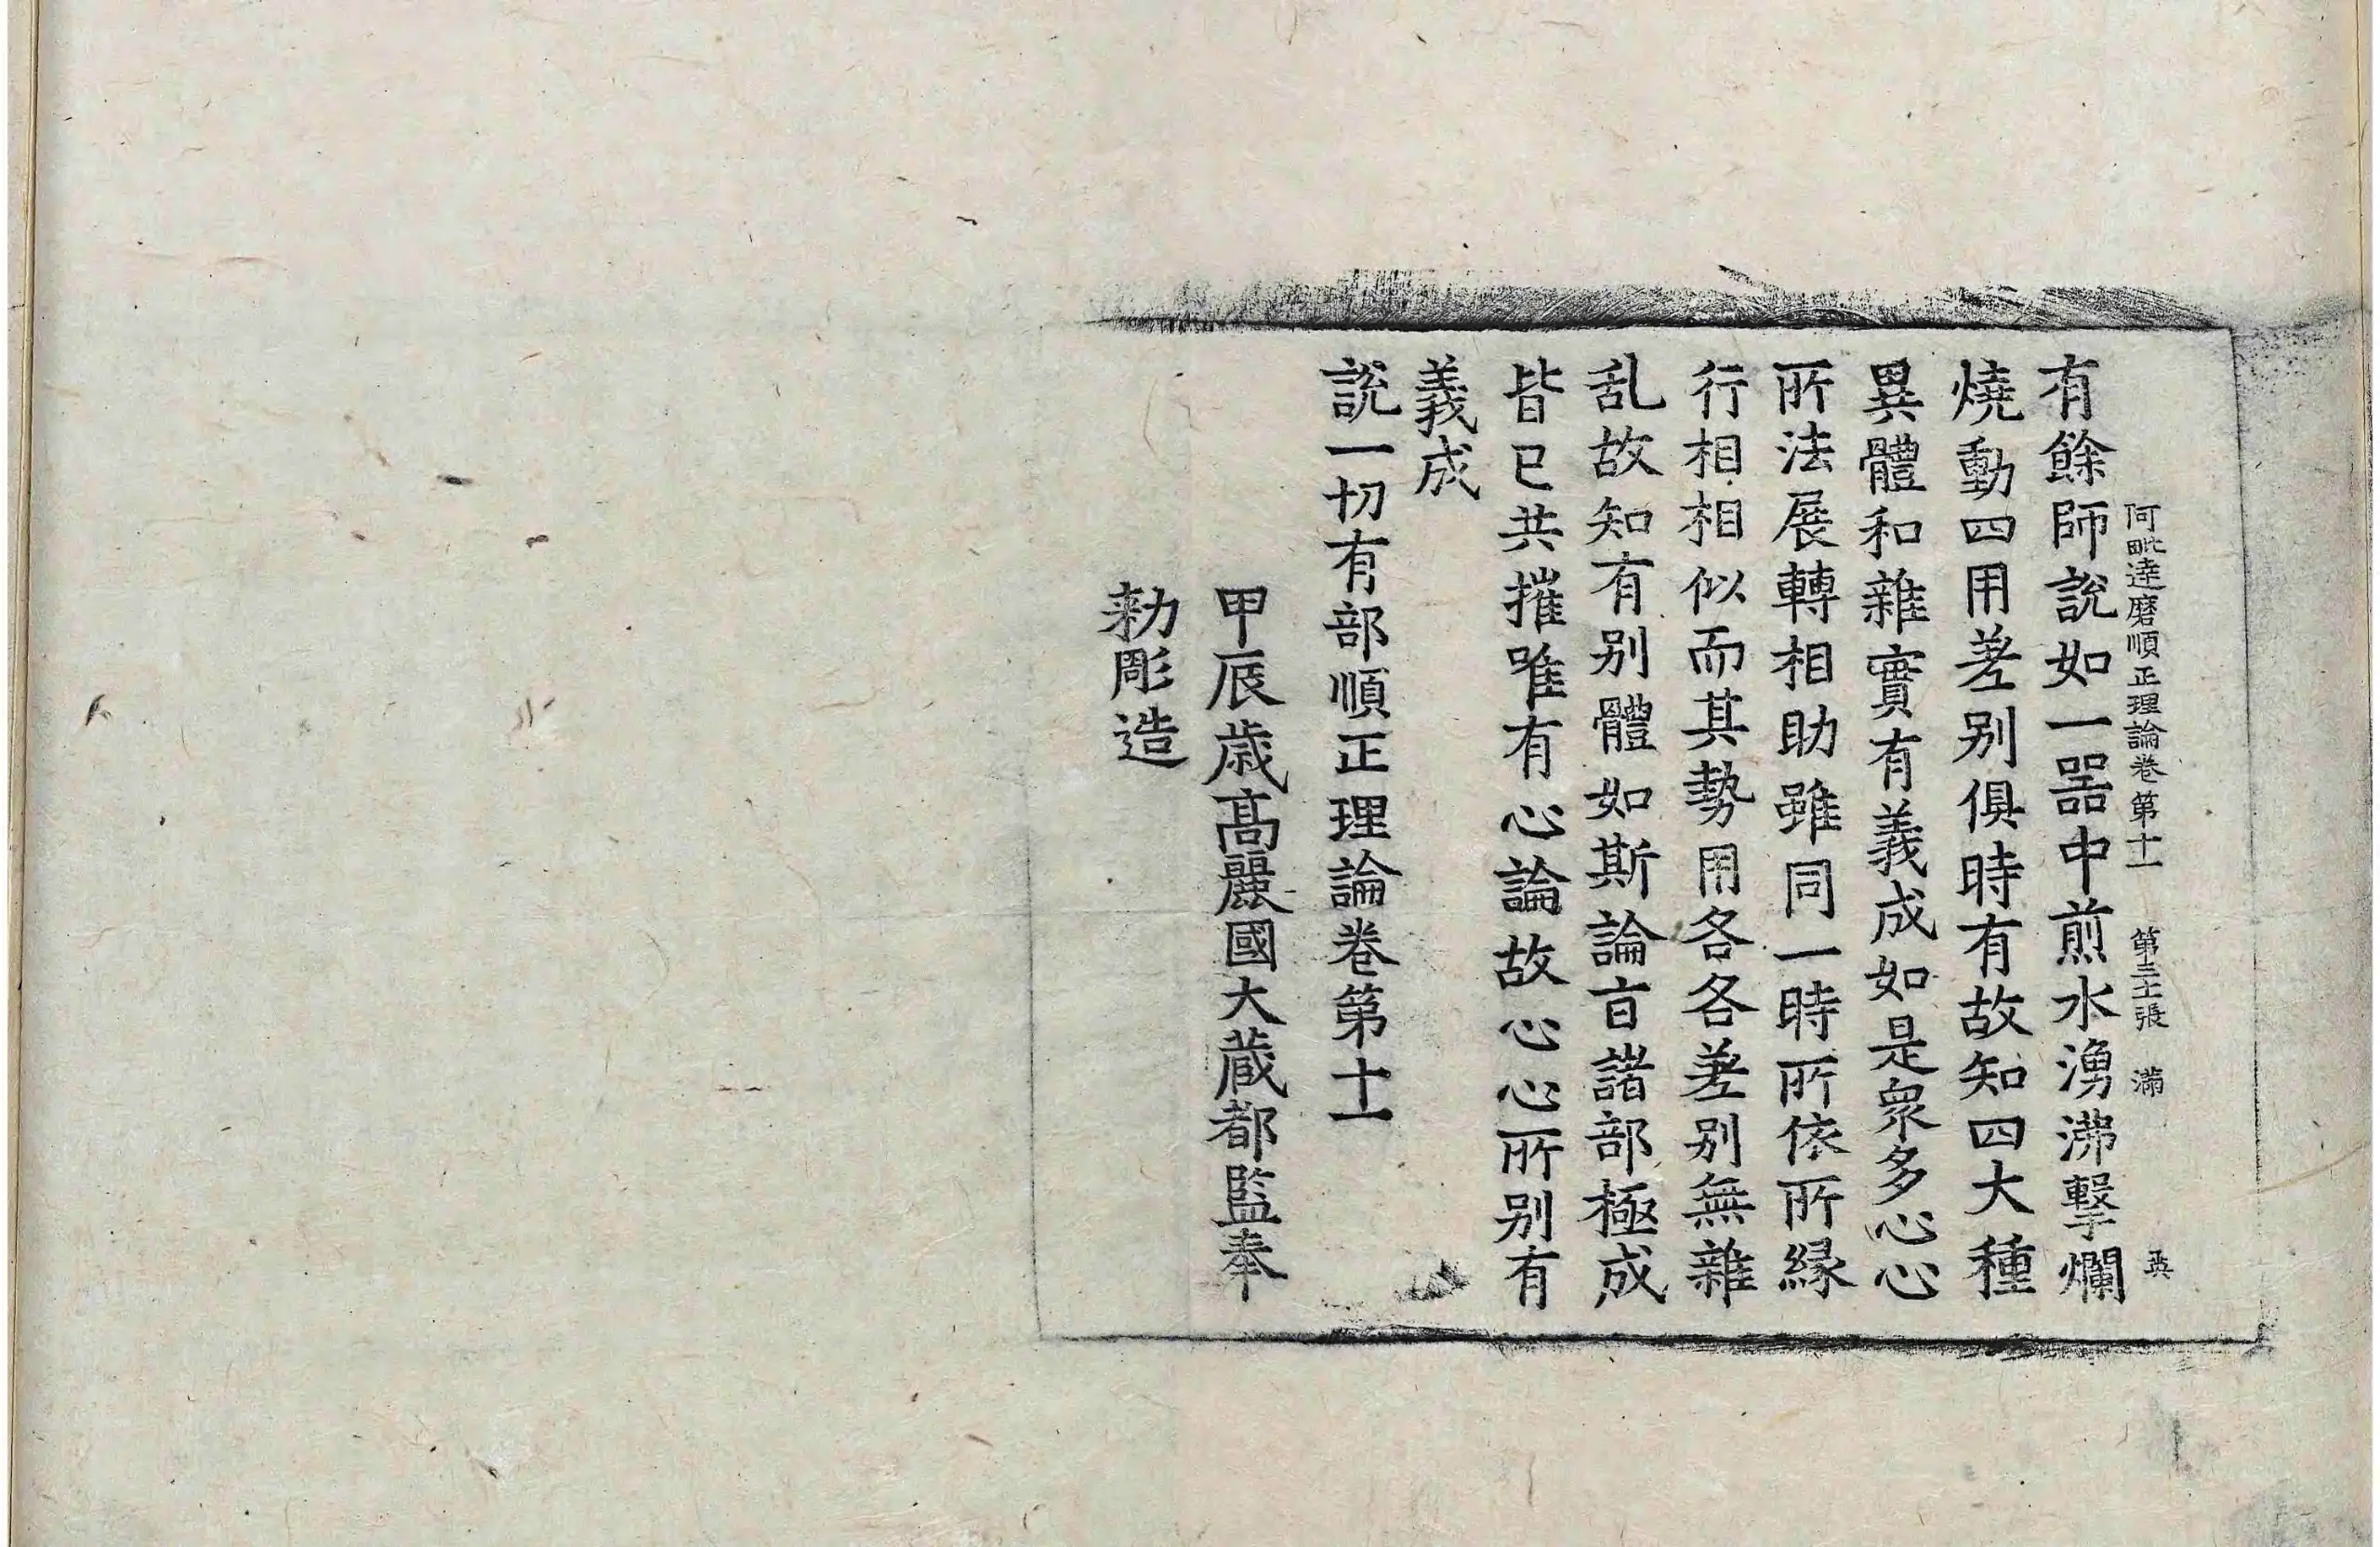 阿毗達磨順正理論卷第十一 第三十二張 滿
有餘師說如一器中煎水湧沸擊爛
燒動四用差别俱時有故知四大種
異體和雜實有義成如是衆多心心
所法展轉相助雖同一時所依所縁
行相相似而其勢用各各差别無雜
乱故知有别體如斯論㫖諸部極成
皆已共摧唯有心論故心心所别有
義成
說一切有部順正理論卷第十一
甲辰歲髙麗國大藏都監奉
勅彫造